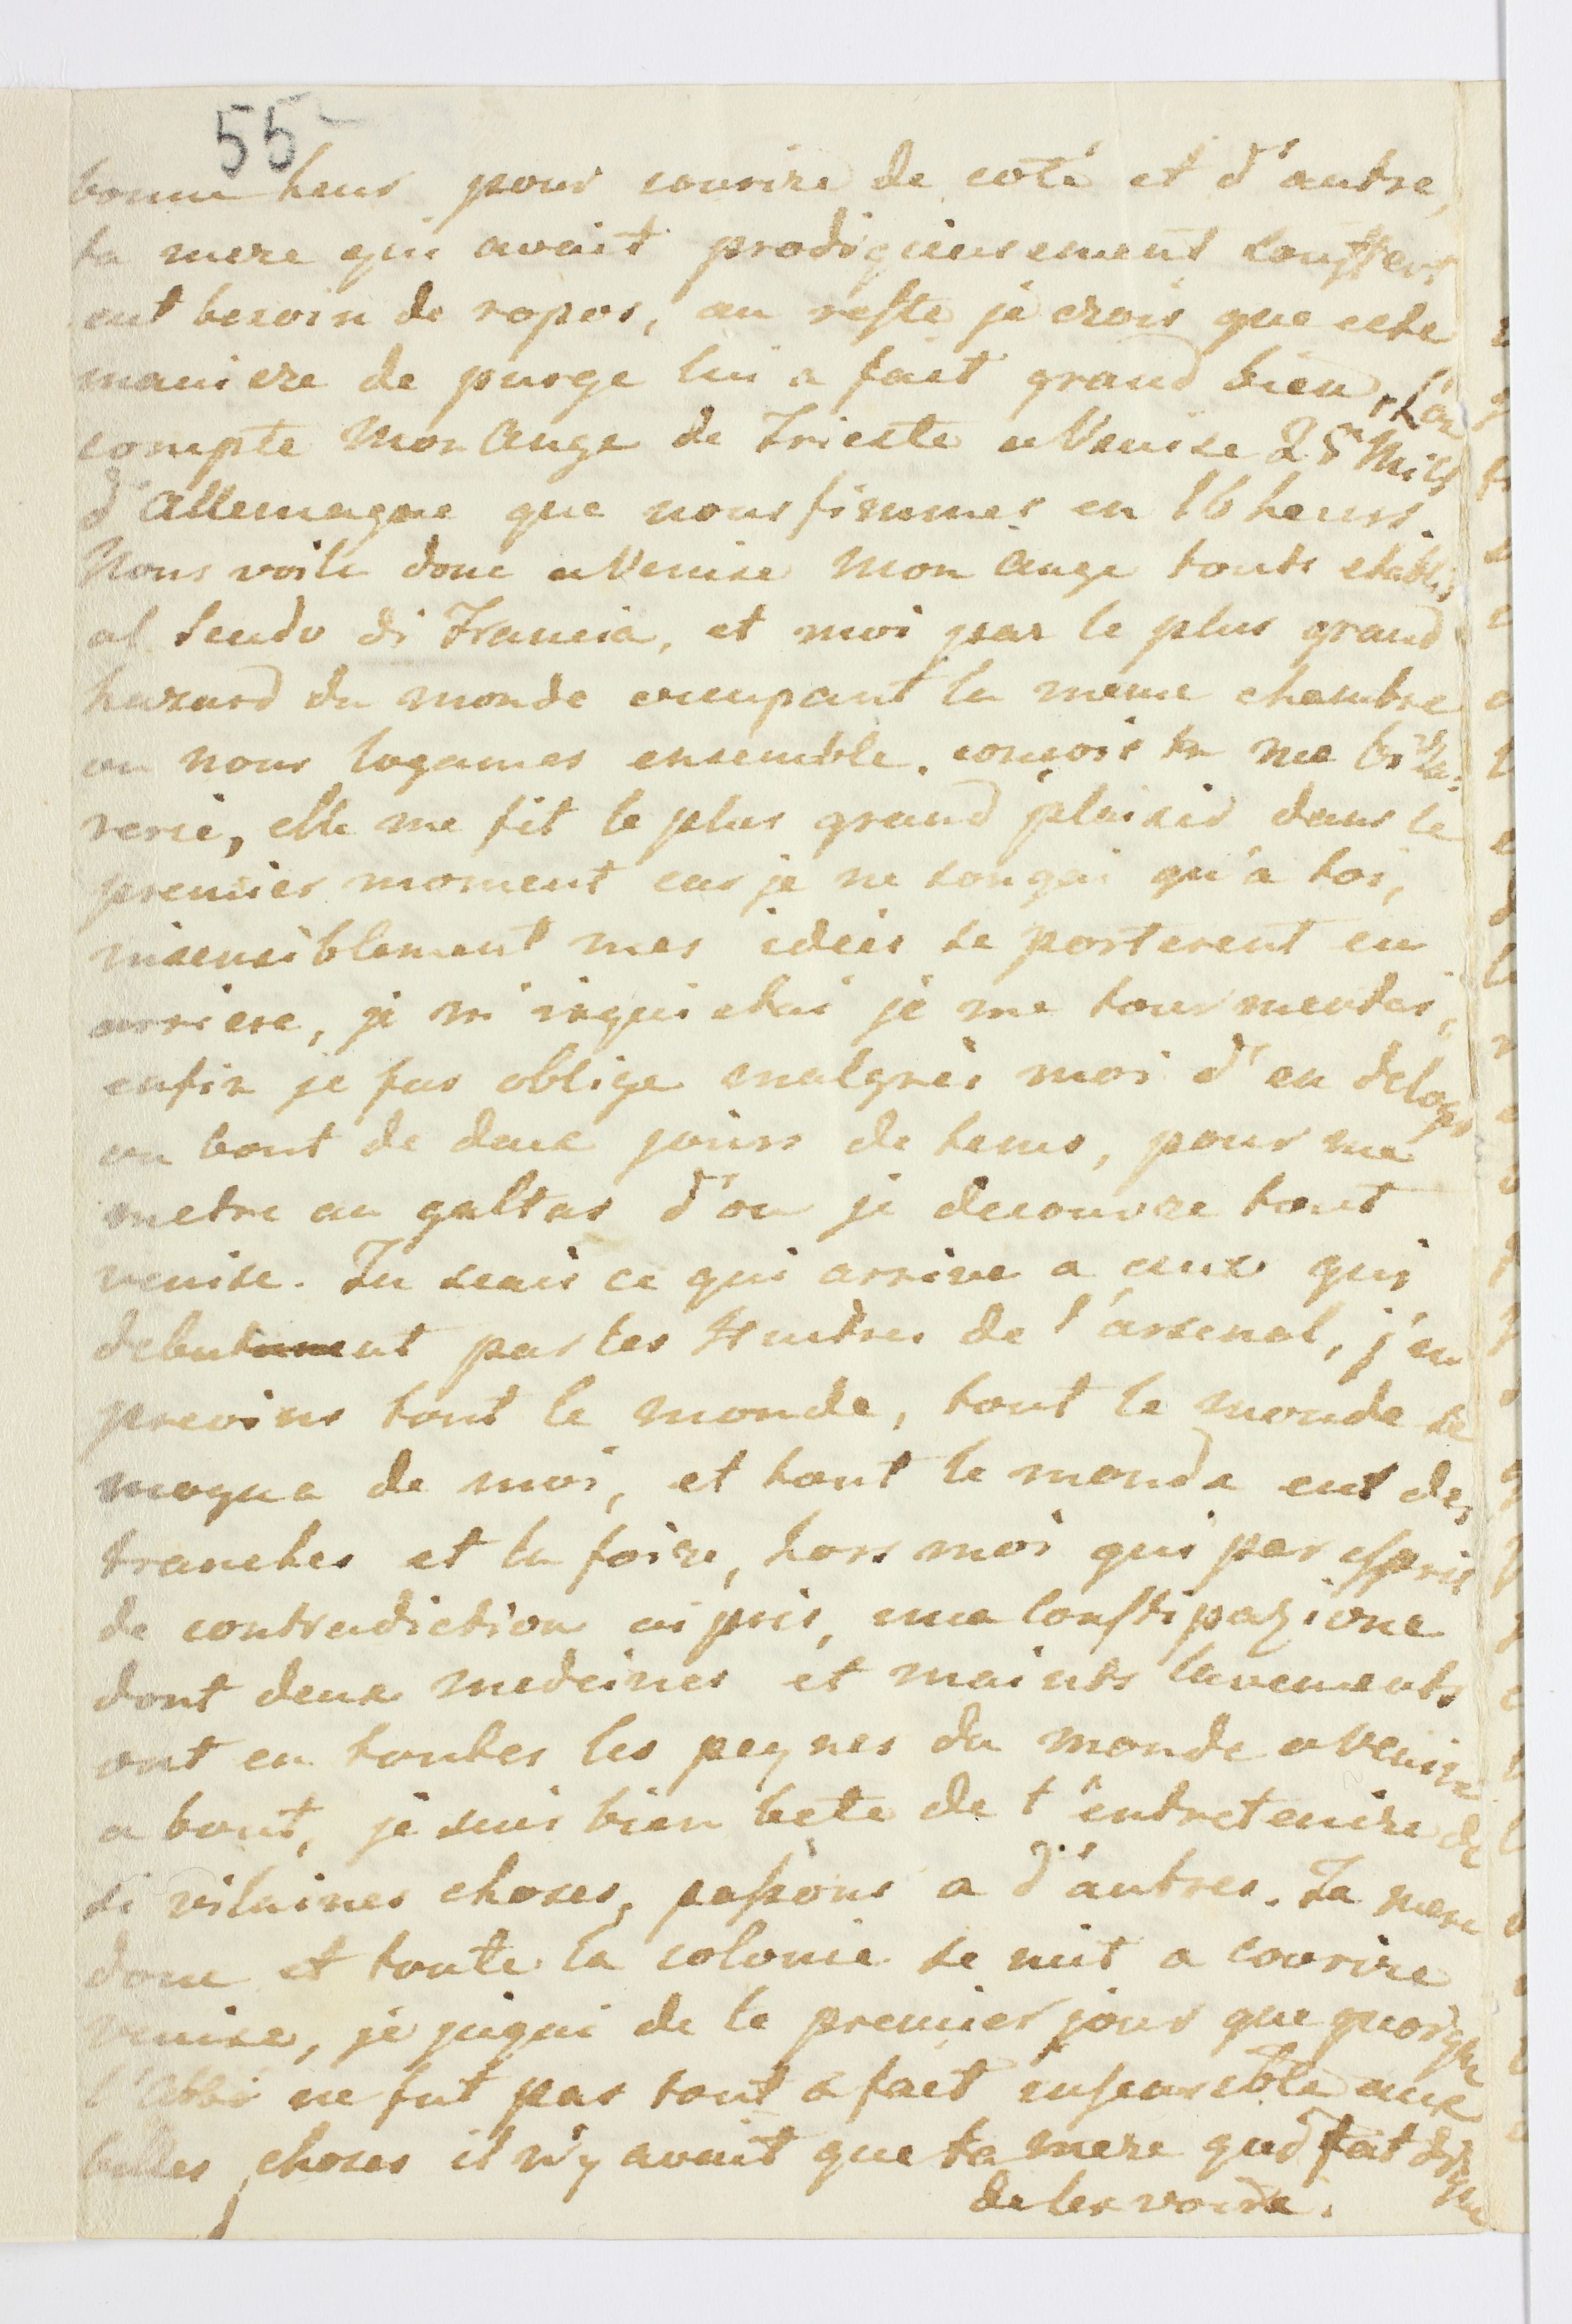 55
bonne heur pour courire de coté et d'autre,
ta mere qui avait prodigieusement souffert
eut besoin de ropos, au reste je crois que cete
maniere de purge lui a fait grand bien, l'on
compte Mon Ange de Trieste a Venise 25 Mils
d'Allemagne que nous finumes en 16 heurs.
Nous voila donc a Venise Mon Ange touts etablis
al Scudo di Francia, et moi par le plus grand
hazard du monde occupant la meme chambre
ou nous logames ensemble. conçois tu ma bi
rerie, elle me fit le plus grand plaisir dans le
premier moment car je ne songai qu'a toi,
insensiblement mes idées se porterent en
arriere, je m'inquietai je me tourmentai,
enfin je fus oblige malgrès moi d'en deloger
au bout de deux jours de tems, pour me
metre au galtas d'ou je decouvre tout
venise. Tu scais ce qui arrive a ceux qui
debutent par les huitres de l'arsenal, j'en
previns tout le monde, tout le monde se
moqua de moi, et tout le monde eut des
tranches et la foire, hors moi qui par esprit
de contradiction ai pris, una Constipazione
dont deux medecines et maints lavements
ont eu toutes les peynes du monde a venire
a bout, je suis bien bete de t'entretenire de
si vilaines choses, passons a d'autres. Ta mere
donc et toute la colonie se mit a courire
venise, je jugai de le premier jour que quoique
l'Abbé ne fut pas tout a fait insensible aux
belles choses il n'y avait que ta mere qui fut digne
de les voire.